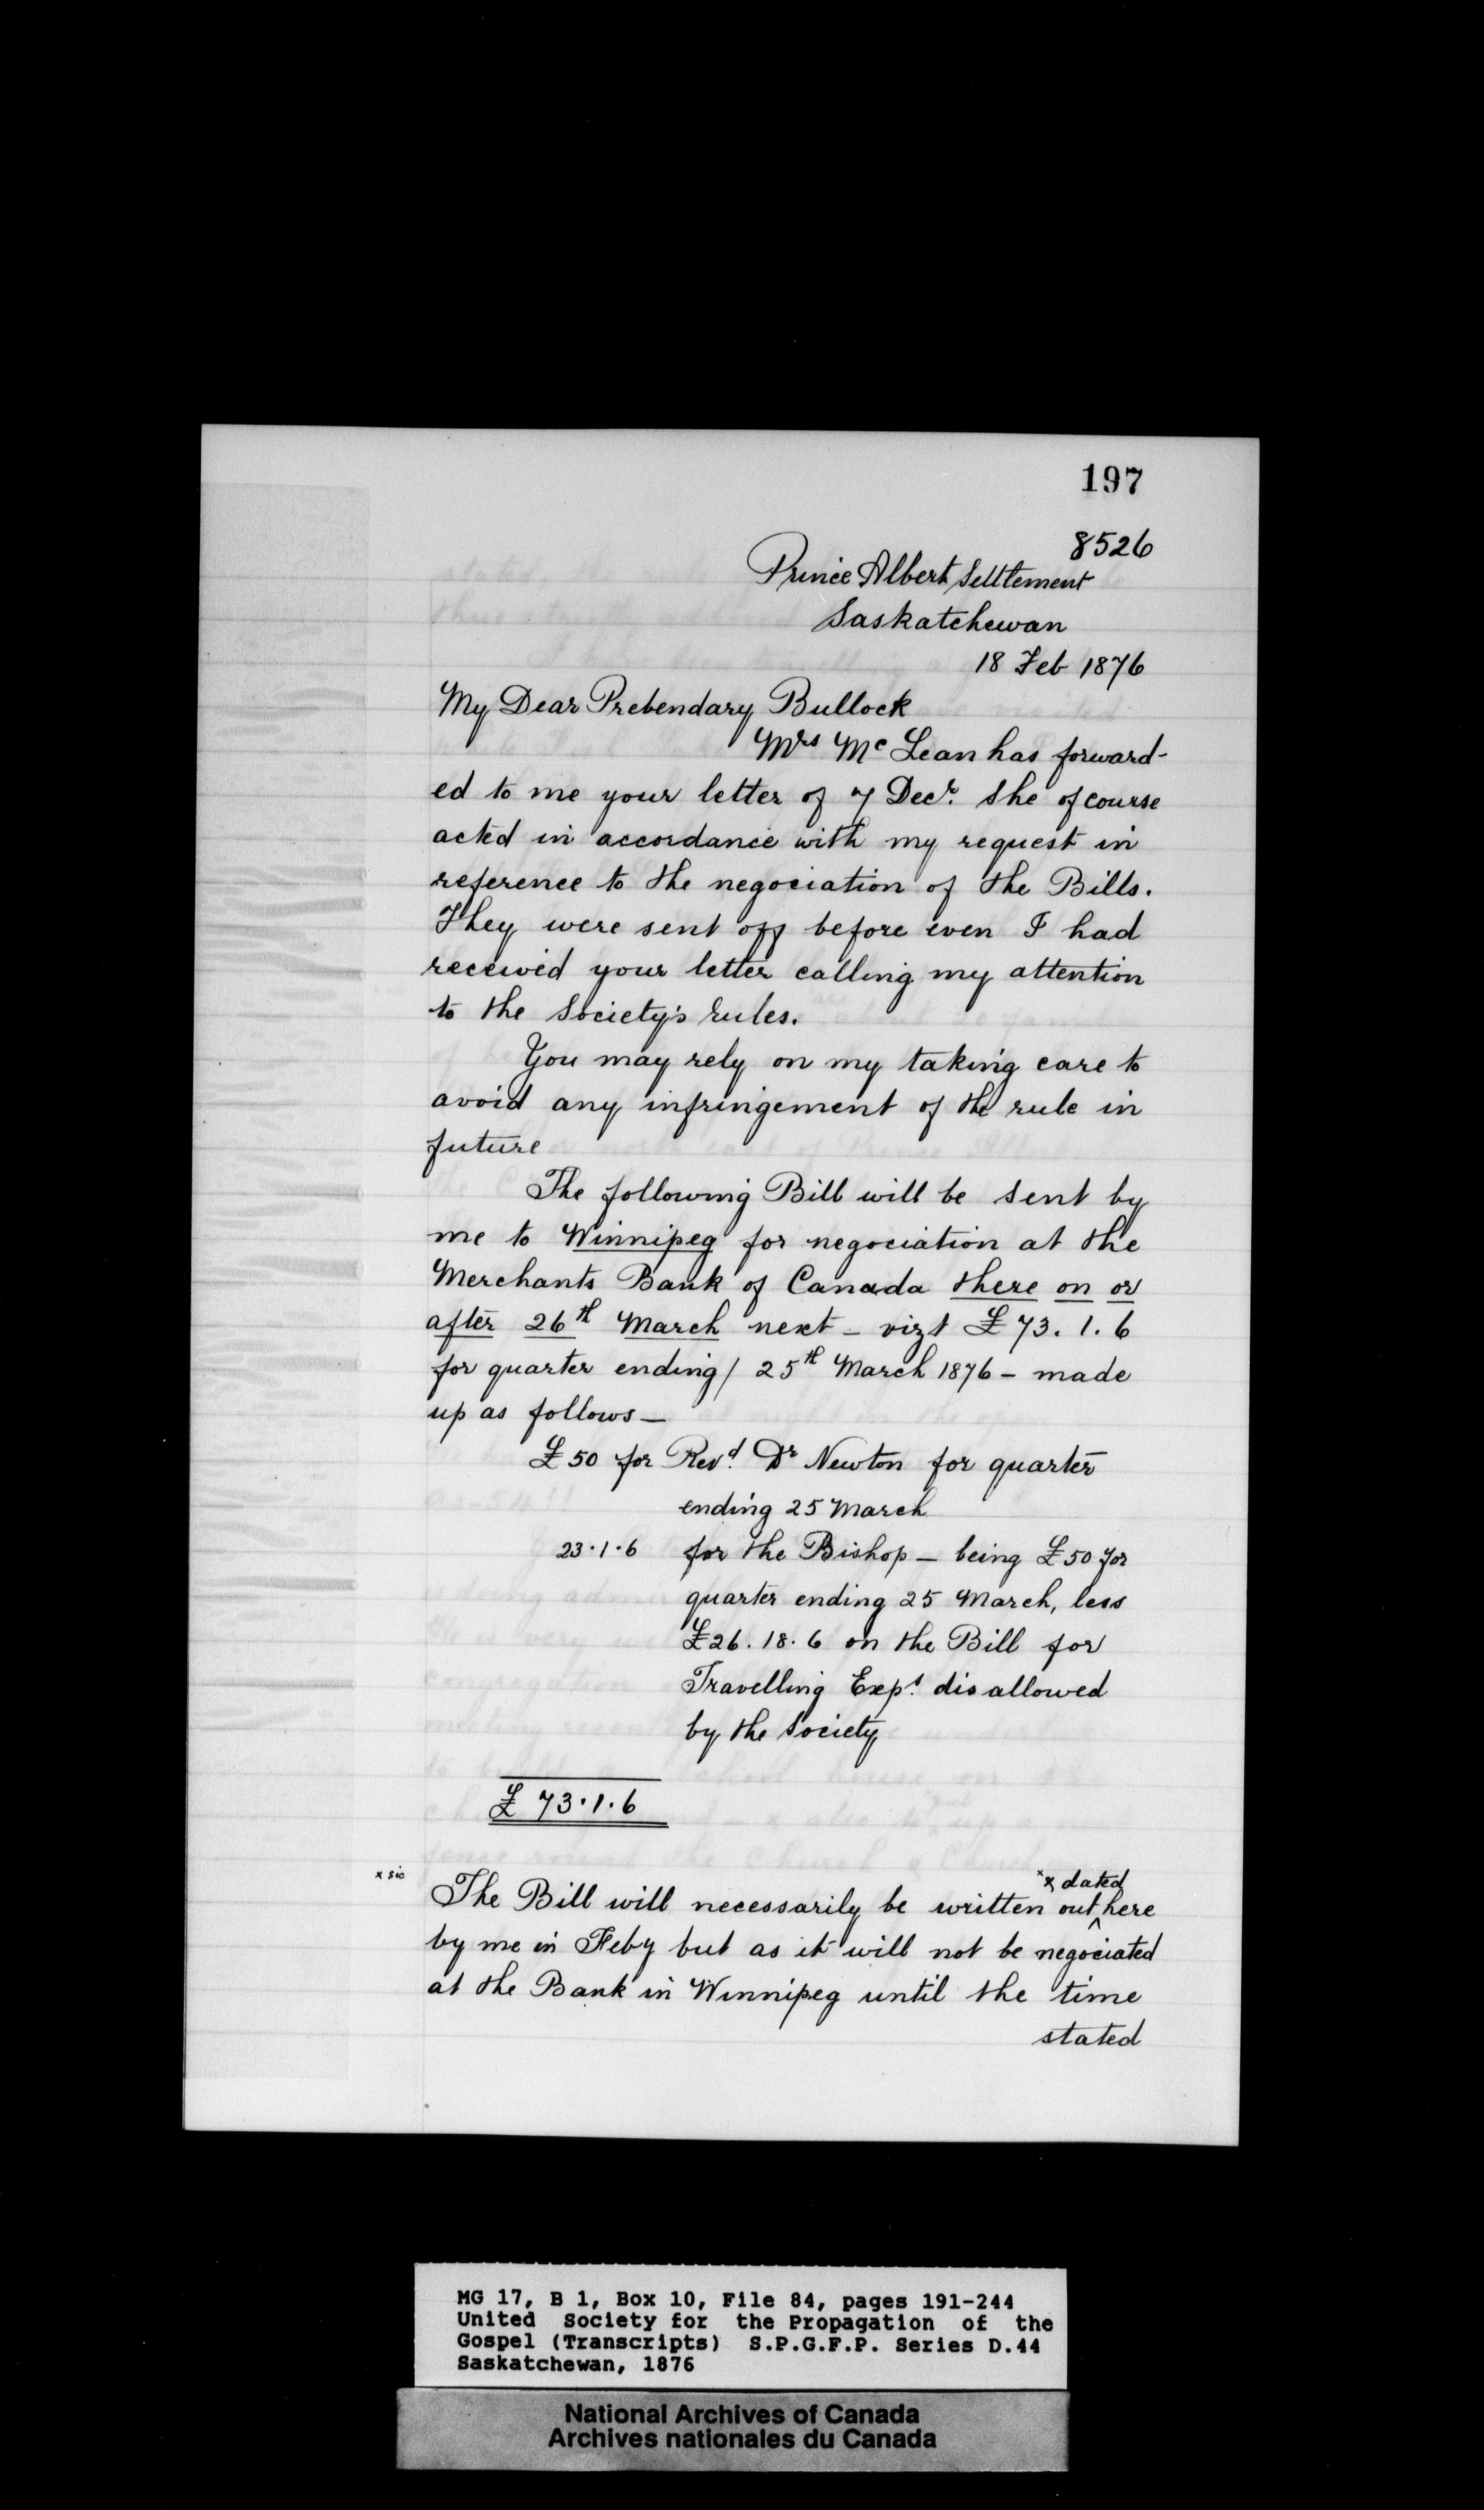 197
8526
Prince Albert Settlement
Saskatchewan
18 Feb 1876
My Dear Prebendary Bullock
Mrs Mc Lean has forward-
ed to me your letter of 7 Decr. She of course
acted in accordance with my request in
reference to the negociation of the Bills.
They were sent off before even I had
received your letter calling my attention
to the Society's rules.
You may rely on my taking care to
avoid any infringement of the rule in
future
The following Bill will be sent by
me to Winnipeg for negociation at the
Merchants Bank of Canada there on or
after 26th March next – vizt £73. 1. 6
for quarter ending / 25th March 1876 – made
up as follows –
£50 for Revd. Dr Newton for quarter
ending 25 March
23·1·6 for the Bishop – being £50 for
quarter ending 25 March, less
£26. 18. 6 on the Bill for
Travelling Exps. disallowed
by the Society
£ 73·1·6
x sic
x & dated
The Bill will necessarily be written out ^ here
by me in Feby but as it will not be negociated
at the Bank in Winnipeg until the time
stated
MG 17, B 1, Box 10, File 84, pages 191-244
United Society for the Propagation of the
Gospel (Transcripts) S.P.G.F.P. Series D.44
Saskatchewan, 1876
National Archives of Canada
Archives nationales du Canada